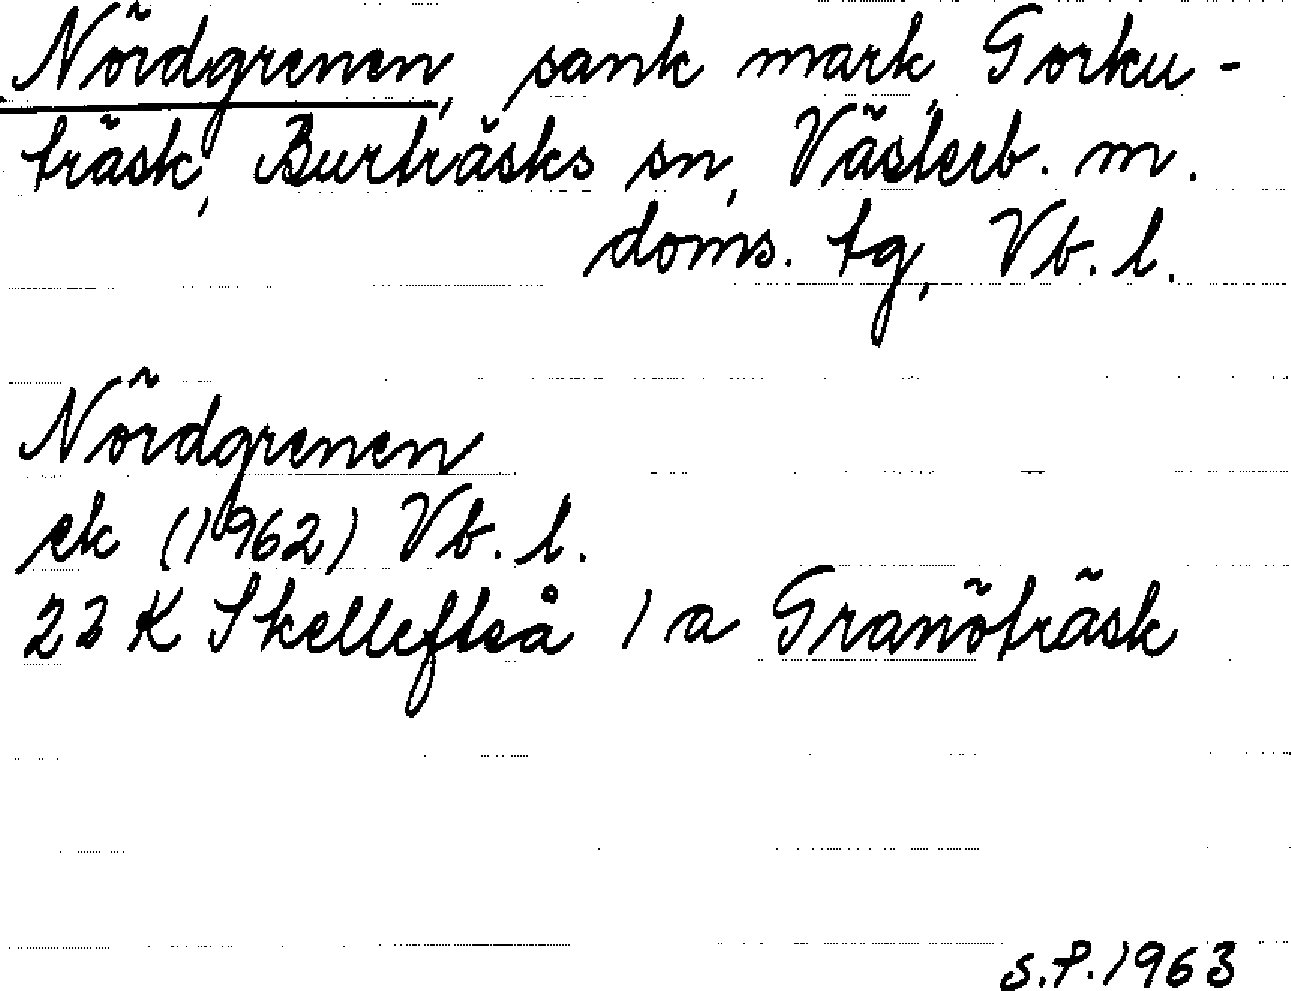 Nördgrenen, sank mark, Gorku-
träsk, Burträsks sn, Västerb. m.
doms. tg, Vb. l.
Nördgrenen
ek (1962) Vb. l.
22 K Skellefteå 1 a Granöträsk
S.P. 1963